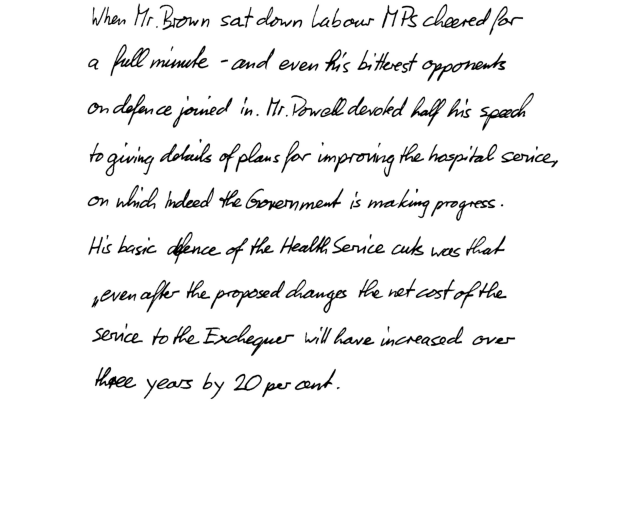 When Mr. Brown sat down Labour MPs cheered for
a full minute - and even his bitterest opponents
on defence joined in. Mr. Powell devoted half his speech
to giving details of plans for improving the hospital service,
on which indeed the Government is making progress.
His basic defence of the Health Service cuts was that
"even after the proposed changes the net cost of the
service to the Exchequer will have increased over
three years by 20 per cent.